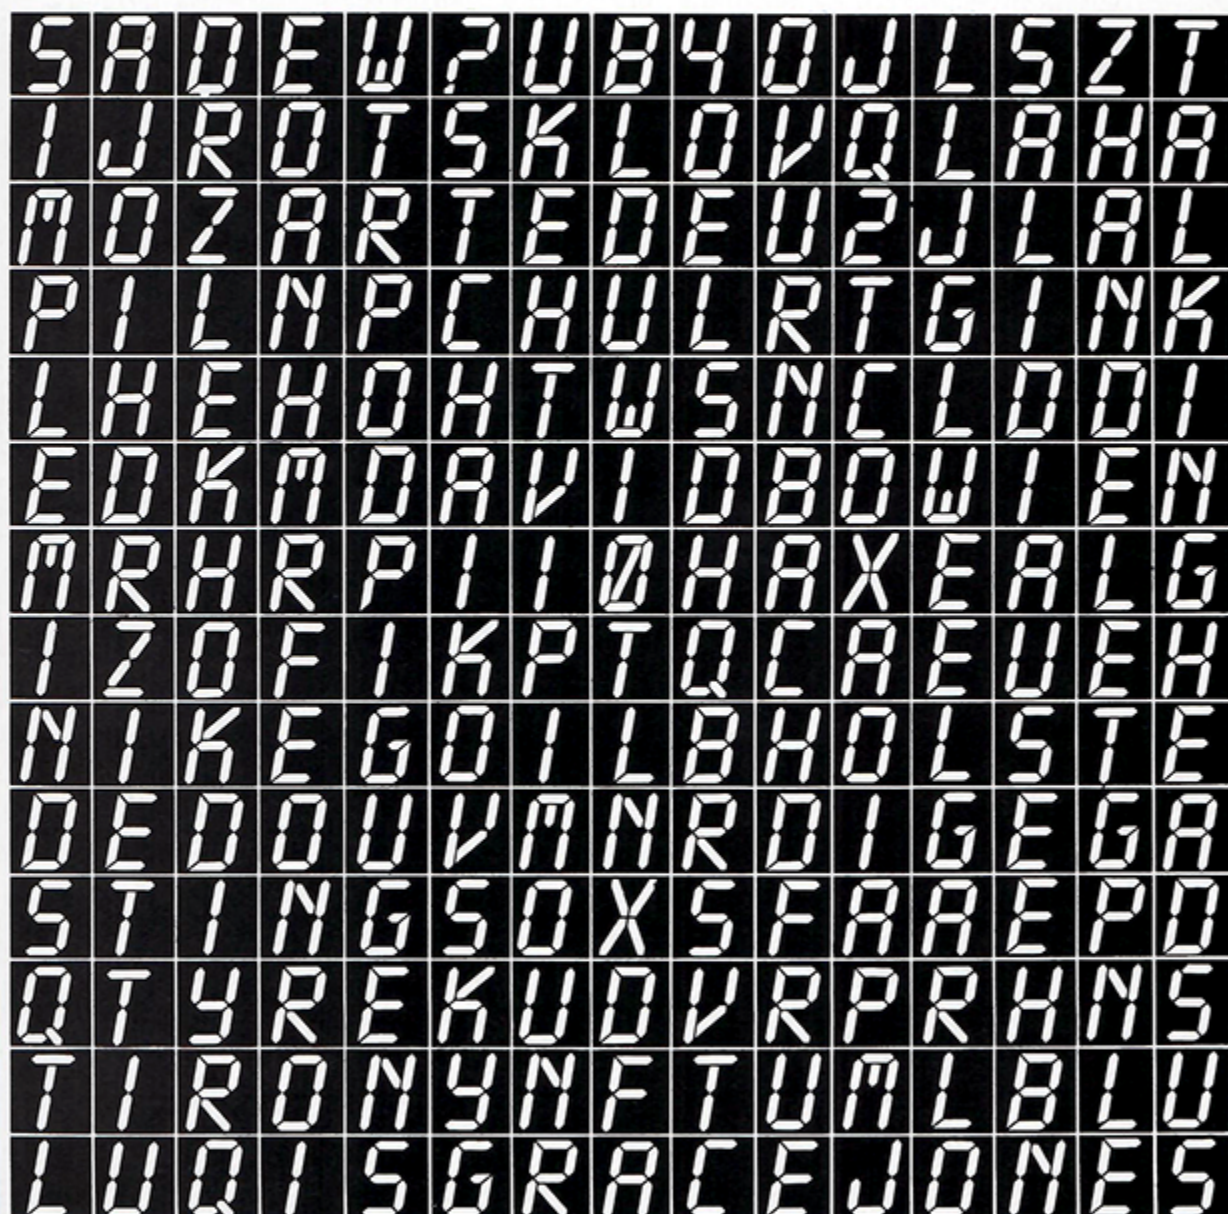 S A D E W ? U B 4 O J L S Z T
I J R O T S K L O V Q L A H A
M O Z A R T E D E U 2 J L A L
P I L N P C H U L R T G I N K
L H E H O H T W S N C L D D I
E D K M D A V I D B O W I E N
M R H R P I I Ø H A X E A L G
I Z O F I K P T Q C A E U E H
N I K E G O I L B H O L S T E
D E D O U V M N R D I G E G A
S T I N G S O X S F A A E P D
Q T Y R E K U D V R P R H N S
T I R O N Y N F T U M L B L U
L U Q I S G R A C E J O N E S